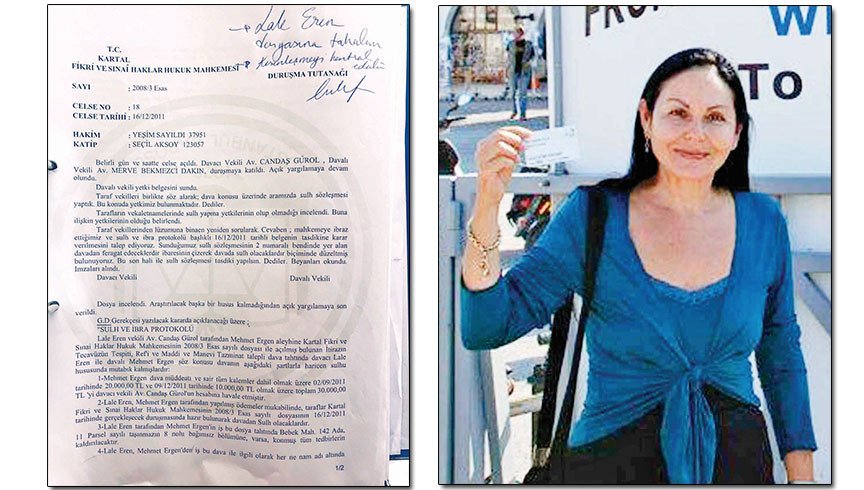 → Lale Eren
T.C.
KARTAL
FİKRİ VE SINAİ HAKLAR HUKUK MAHKEMESİ
DURUŞMA TUTANAĞI
SAYI : 2008/3 Esas
CELSE NO : 18
CELSE TARİHİ : 16/12/2011
HAKİM : YEŞİM SAYILDI 37951
KATİP : SEÇİL AKSOY 123057
Belirli gün ve saatte celse açıldı. Davacı Vekili Av. CANDAŞ GÜROL , Davalı
Vekili Av. MERVE BEKMEZCİ DAKIN, duruşmaya katıldı. Açık yargılamaya devam
olundu.
Davalı vekili yetki belgesini sundu.
Taraf vekilleri birlikte söz alarak; dava konusu üzerinde aramızda sulh sözleşmesi
yaptık. Bu konuda yetkimiz bulunmaktadır. Dediler.
Tarafların vekaletnamelerinde sulh yapma yetkilerinin olup olmadığı incelendi. Buna
ilişkin yetkilerinin olduğu belirlendi.
Taraf vekillerinden lüzumuna binaen yeniden sorularak. Cevaben , mahkemeye ibraz
ettiğimiz ve sulh ve ibra protokolü başlıklı 16/12/2011 tarihli belgenin tasdikine karar
verilmesini talep ediyoruz. Sunduğumuz sulh sözleşmesinin 2 numaralı bendinde yer alan
davadan feragat edeceklerdir ibaresinin çizerek davada sulh olacaklardır biçiminde düzeltmiş
bulunuyoruz. Bu son hali ile sulh sözleşmesi tasdiki yapılsın. Dediler. Beyanları okundu.
İmzaları alındı.
Davacı Vekili Davalı Vekili
Dosya incelendi. Araştırılacak başka bir husus kalmadığından açık yargılamaya son
verildi.
G.D:Gerekçesi yazılacak kararda açıklanacağı üzere ;
"SULH VE İBRA PROTOKOLÜ
Lale Eren vekili Av. Candaş Gürol tarafından Mehmet Ergen aleyhine Kartal Fikri ve
Sınai Haklar Hukuk Mahkemesinin 2008/3 Esas sayılı dosyası ile açılmış bulunan İntızarın
Tecavüzün Tespiti, Ref'i ve Maddi ve Manevi Tazminat talepli dava tahtında davacı Lale
Eren ile davalı Mehmet Ergen söz konusu davanın aşağıdaki şartlarla haricen sulhu
hususunda mutabık kalmışlardır:
1-Mehmet Ergen dava müddeatı ve sair tüm kalemler dahil olmak üzere 02/09/2011
tarihinde 20.000,00 TL ve 09/12/2011 tarihinde 10.000,00 TL olmak üzere toplam 30.000,00
TL 'yi davacı vekili Av. Candaş Gürol'un hesabına havale etmiştir.
2-Lale Eren, Mehmet Ergen tarafından yapılmış ödemeler mukabilinde, taraflar Kartal
Fikri ve Sınai Haklar Hukuk Mahkemesinin 2008/3 Esas sayılı dosyasının 16/12/2011
tarihinde gerçekleşecek duruşmasında hazır bulunarak davadan Sulh olacaklardır.
3-Lale Eren tarafından Mehmet Ergen'in iş bu dosya tahtında Bebek Mah. 142 Ada,
11 Parsel sayılı taşınmazın 8 nolu bağımsız bölümüne, varsa, konmuş tüm tedbirlerin
kaldırılacaktır.
4-Lale Eren, Mehmet Ergen'den iş bu dava ile ilgili olarak her ne nam adı altında
1/2
To